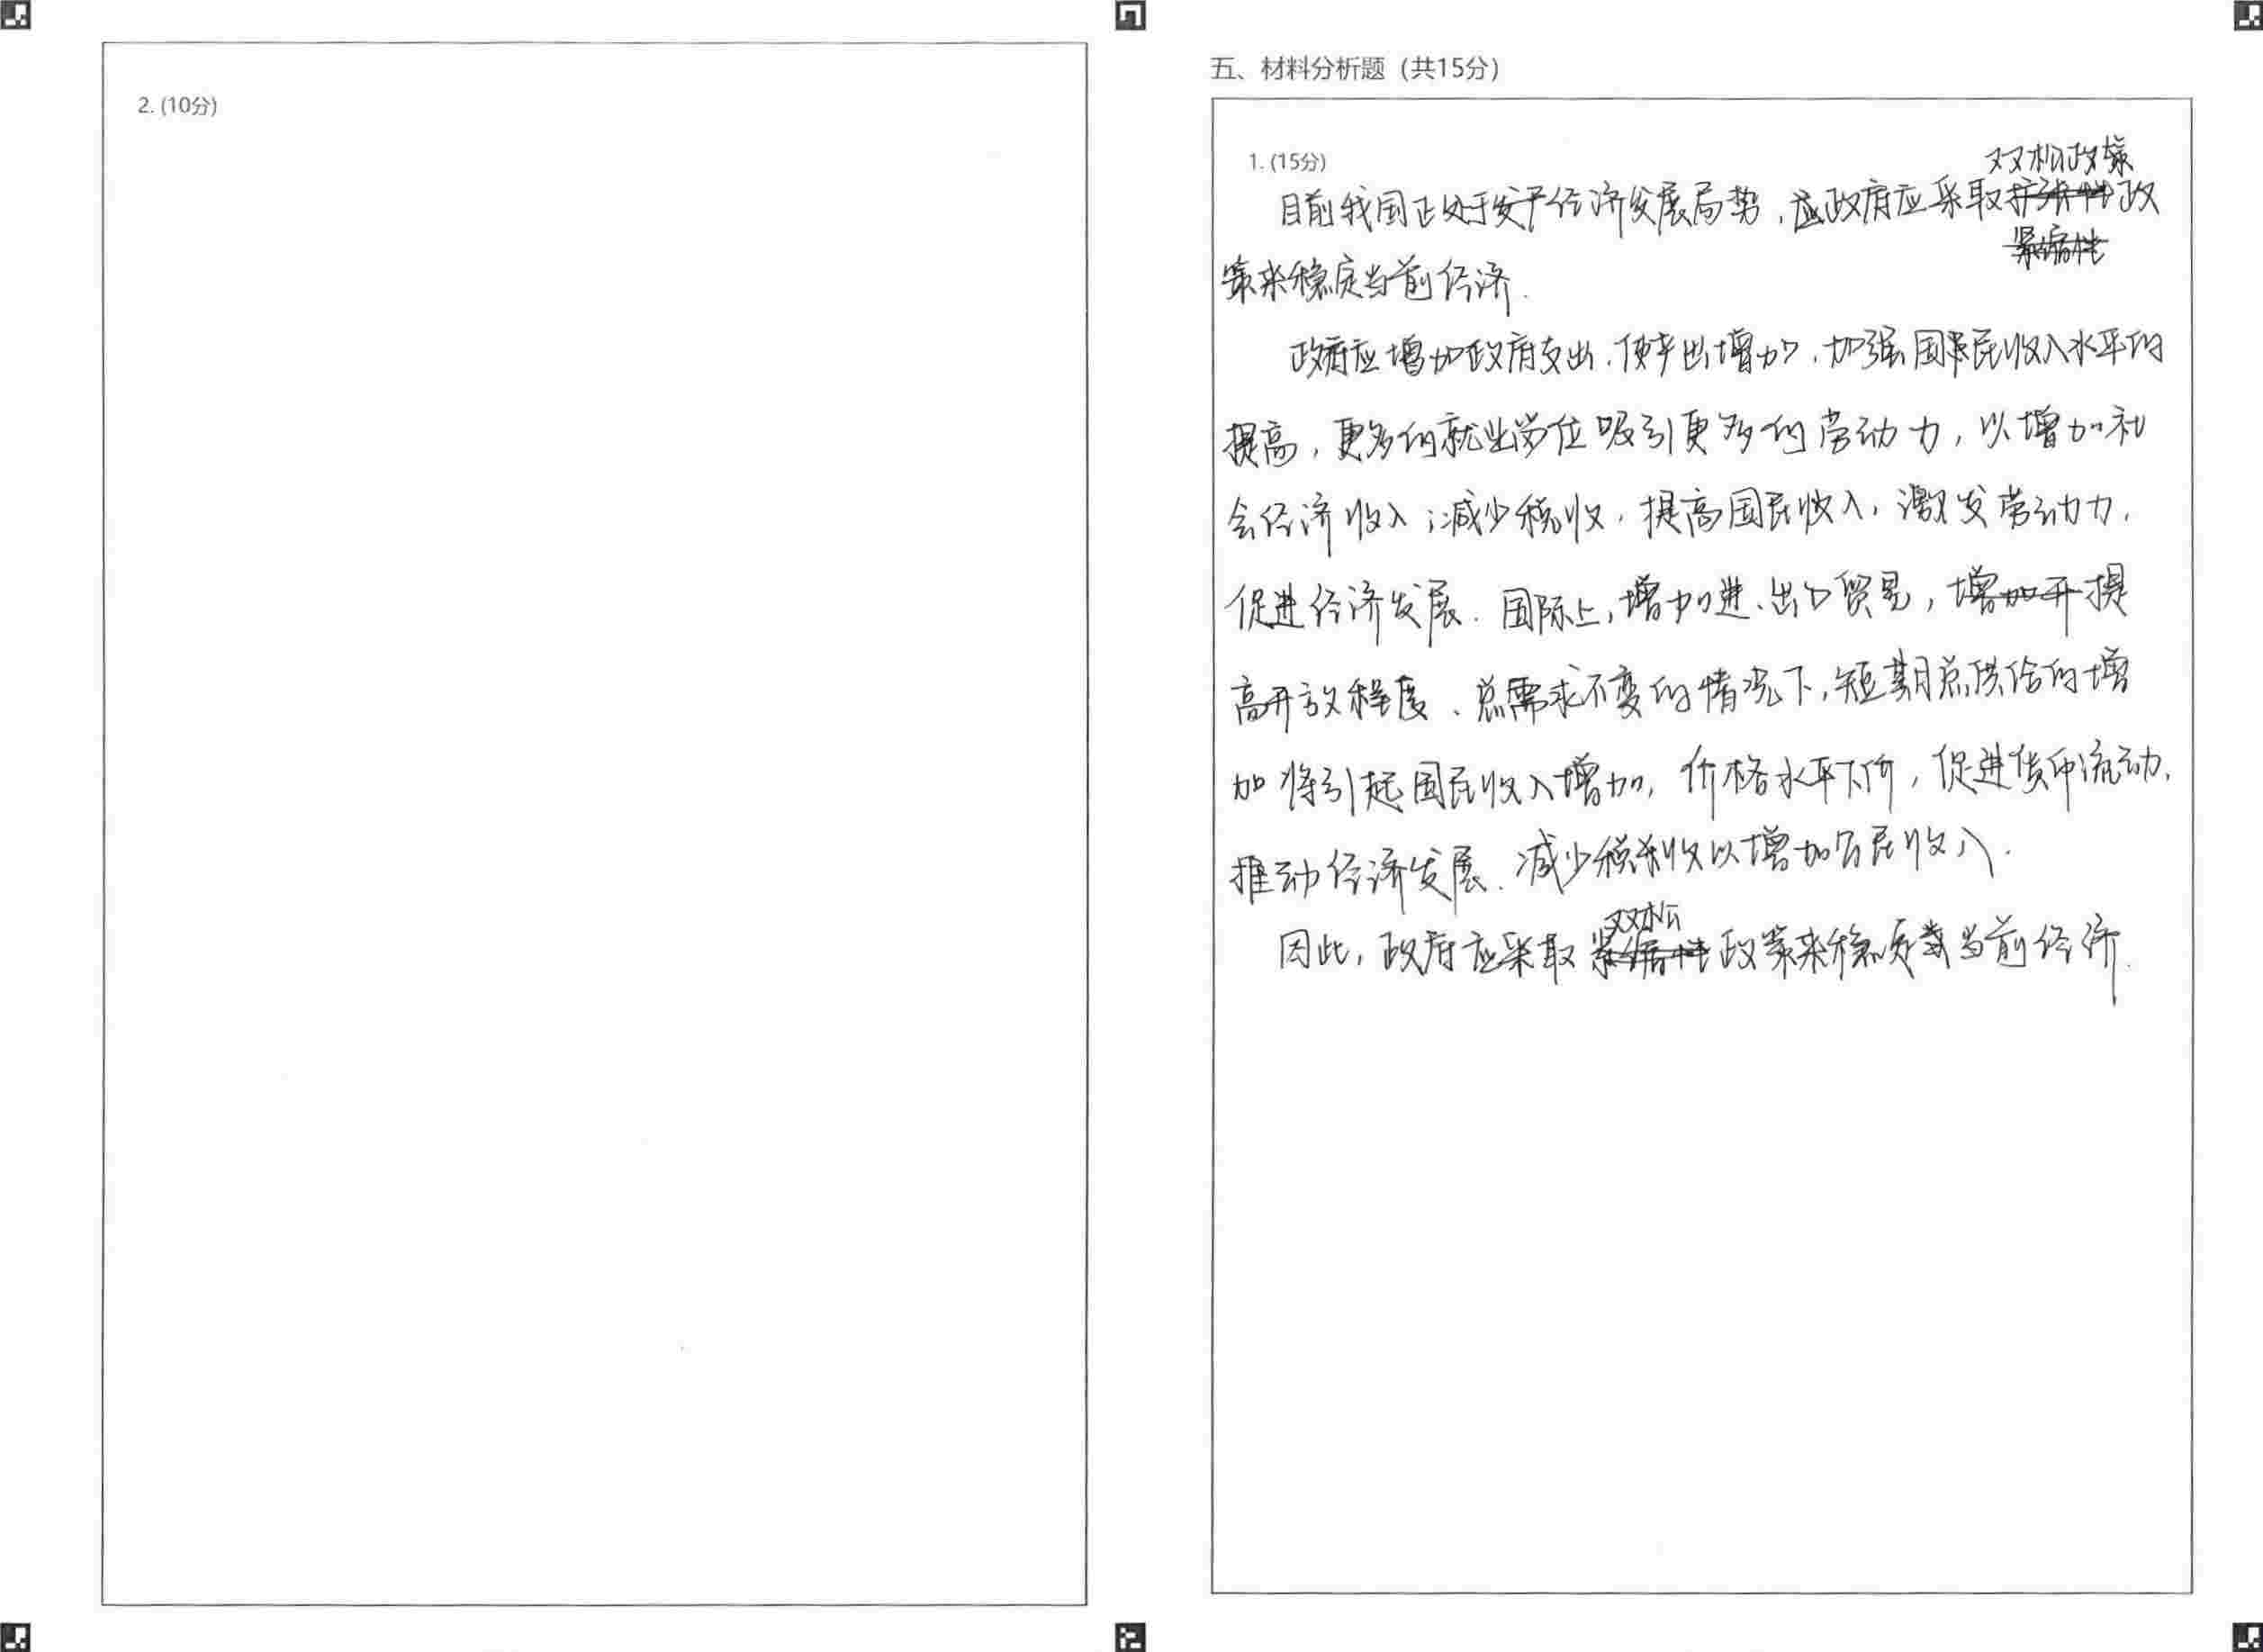 2. (10分)
五、材料分析题（共15分）
1. (15分)
双松政策
目前我国正处于发于经济发展局势，应政府应采取扩张性政
紧缩性
策来稳定当前经济.
政府应增加政府支出,使产出增加,加强国民收入水平的
提高,更多的就业岗位吸引更多的劳动力,以增加社
会经济收入;减少税收,提高国民收入,激发劳动力,
促进经济发展.国际上,增加进、出口贸易,增加开提
高开放程度、总需求不变的情况下,短期总供给的增
加将引起国民收入增加,价格水平下价,促进货币流动,
推动经济发展.减少税利收以增加公民收入.
双松
因此,政府应采取紧缩性政策来稳定当前经济.